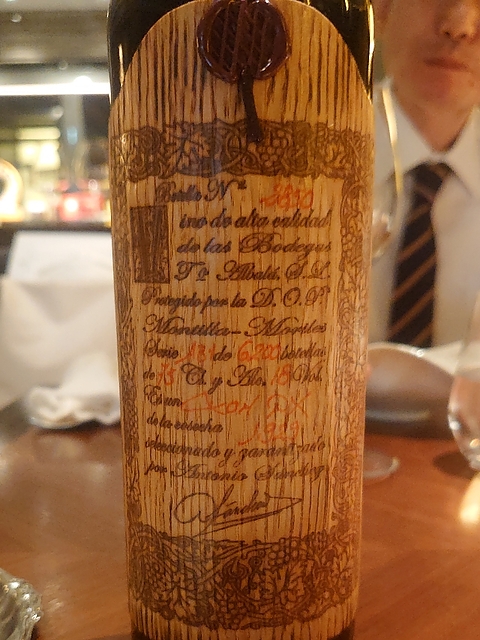 Bello Nº 2810
Vino de alta calidad
de las Bodegas
Tº Albalá, S.L.
Protegido por la D.O.P.
Montilla-Moriles
Serie 131 de 6.200 botellas
de 75 Cl. y Alc. 18 Vol.
Es un Don PX
de la cosecha
seleccionado y garant
por Antonio Sánchez